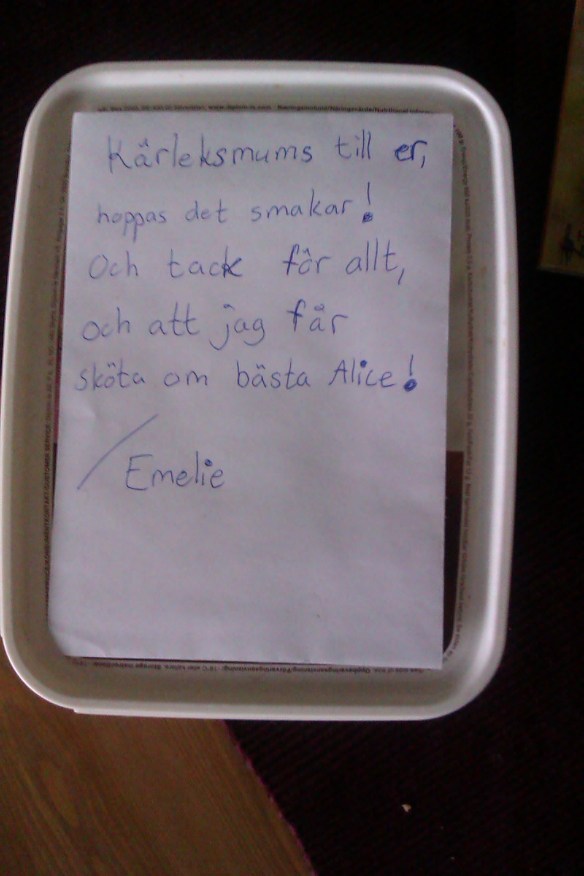 Kärleksmums till er,
hoppas det smakar!
Och tack för allt,
och att jag får
sköta om bästa Alice!
/Emelie